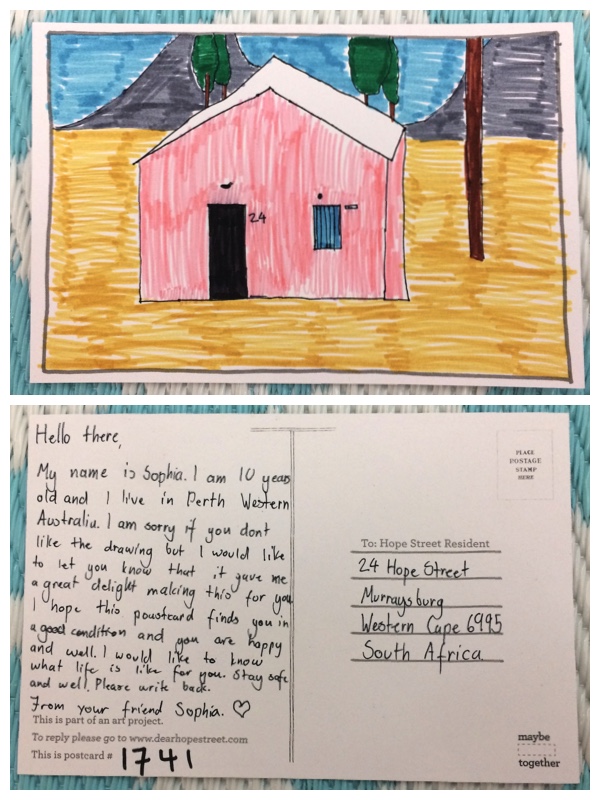 24
Hello there,
My name is Sophia. I am 10 years
old and I live in Perth Western
Australia. I am sorry if you dont
like the drawing but I would like
to let you know that it gave me
a great delight making this for you
I hope this poustcard finds you in
a good condition and you are happy
and well. I would like to know
what life is like for you. Stay safe
and well. Please write back.
From your friend Sophia. ♡
This is part of an art project.
To reply please go to www.dearhopestreet.com
This is postcard # 1741
PLACE
POSTAGE
STAMP
HERE
To: Hope Street Resident
24 Hope Street
Murraysburg
Western Cape 6995
South Africa
maybe
together